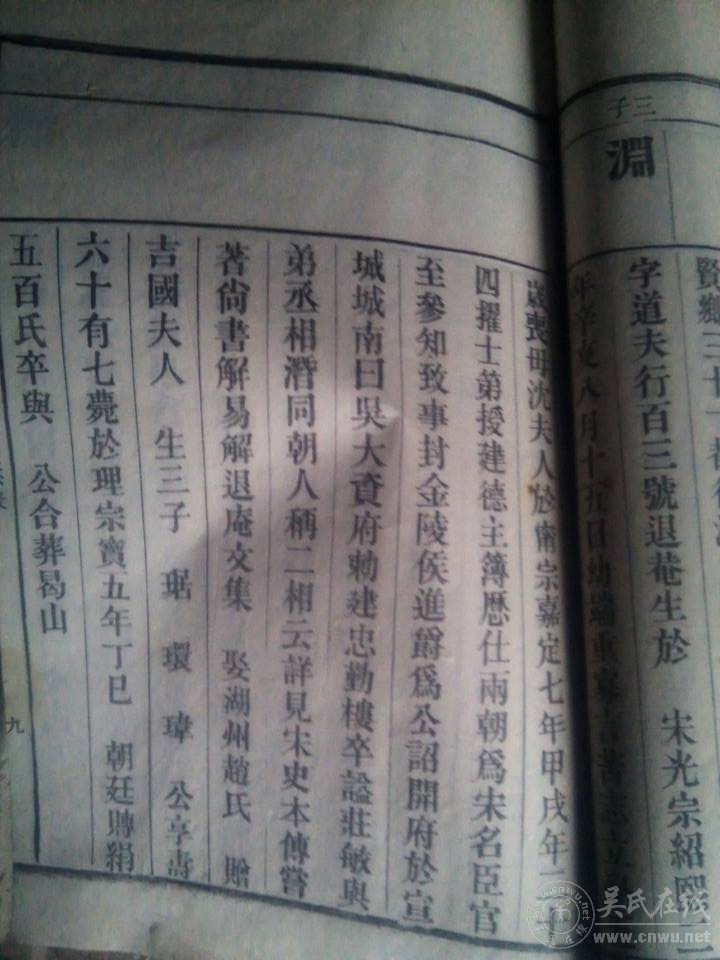 三子
淵
賢鄉三十一都
字道夫行百三號退菴生於 宋光宗紹熙
年辛亥八月十五日幼端重寡言苦志立
歲喪母沈夫人於甯宗嘉定七年甲戌年二
四擢士第授建德主簿歷仕兩朝爲宋名臣官
至參知致事封金陵侯進爵爲公詔開府於宣
城城南曰吳大資府勅建忠勤樓卒謚莊敏與
弟丞相潛同朝人稱二相云詳見宋史本傳嘗
著尙書解易解退庵文集 娶湖州趙氏 贈
吉國夫人 生三子 琚 環 瑋 公享壽
六十有七薨於理宗寶五年丁巳 朝廷賻絹
五百氏卒與 公合葬曷山
九
吴氏在线
www.cnwu.net